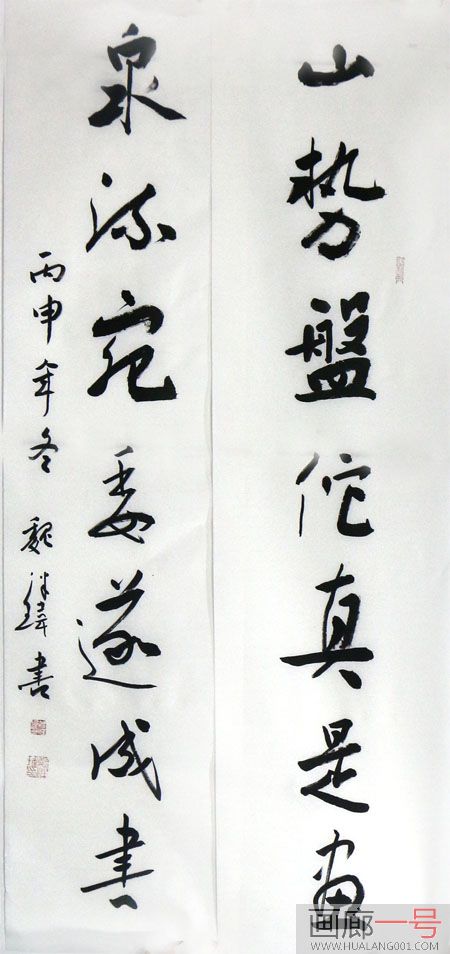 山势盘佗真是画
泉流宛委遂成书
丙申年冬 魏 书
画廊一号
WWW.HUALANG001.COM